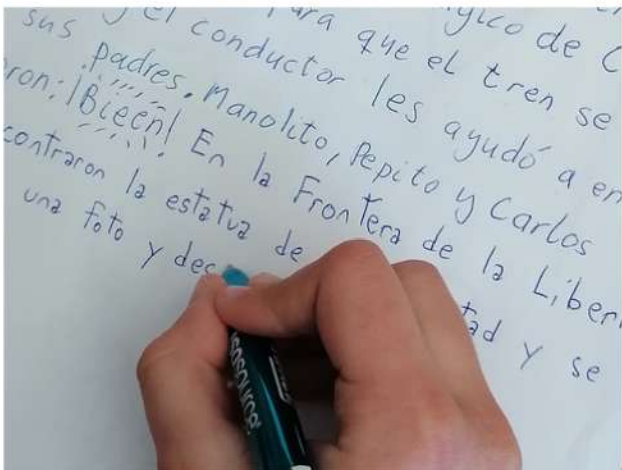 de C
ara que el tren se
y el conductor les ayudó a en
sus padres. Manolito, Pepito y Carlos
ron: ¡Bieen! En la Frontera de la Liber
contraron la estatua de tad y se
una foto y dec